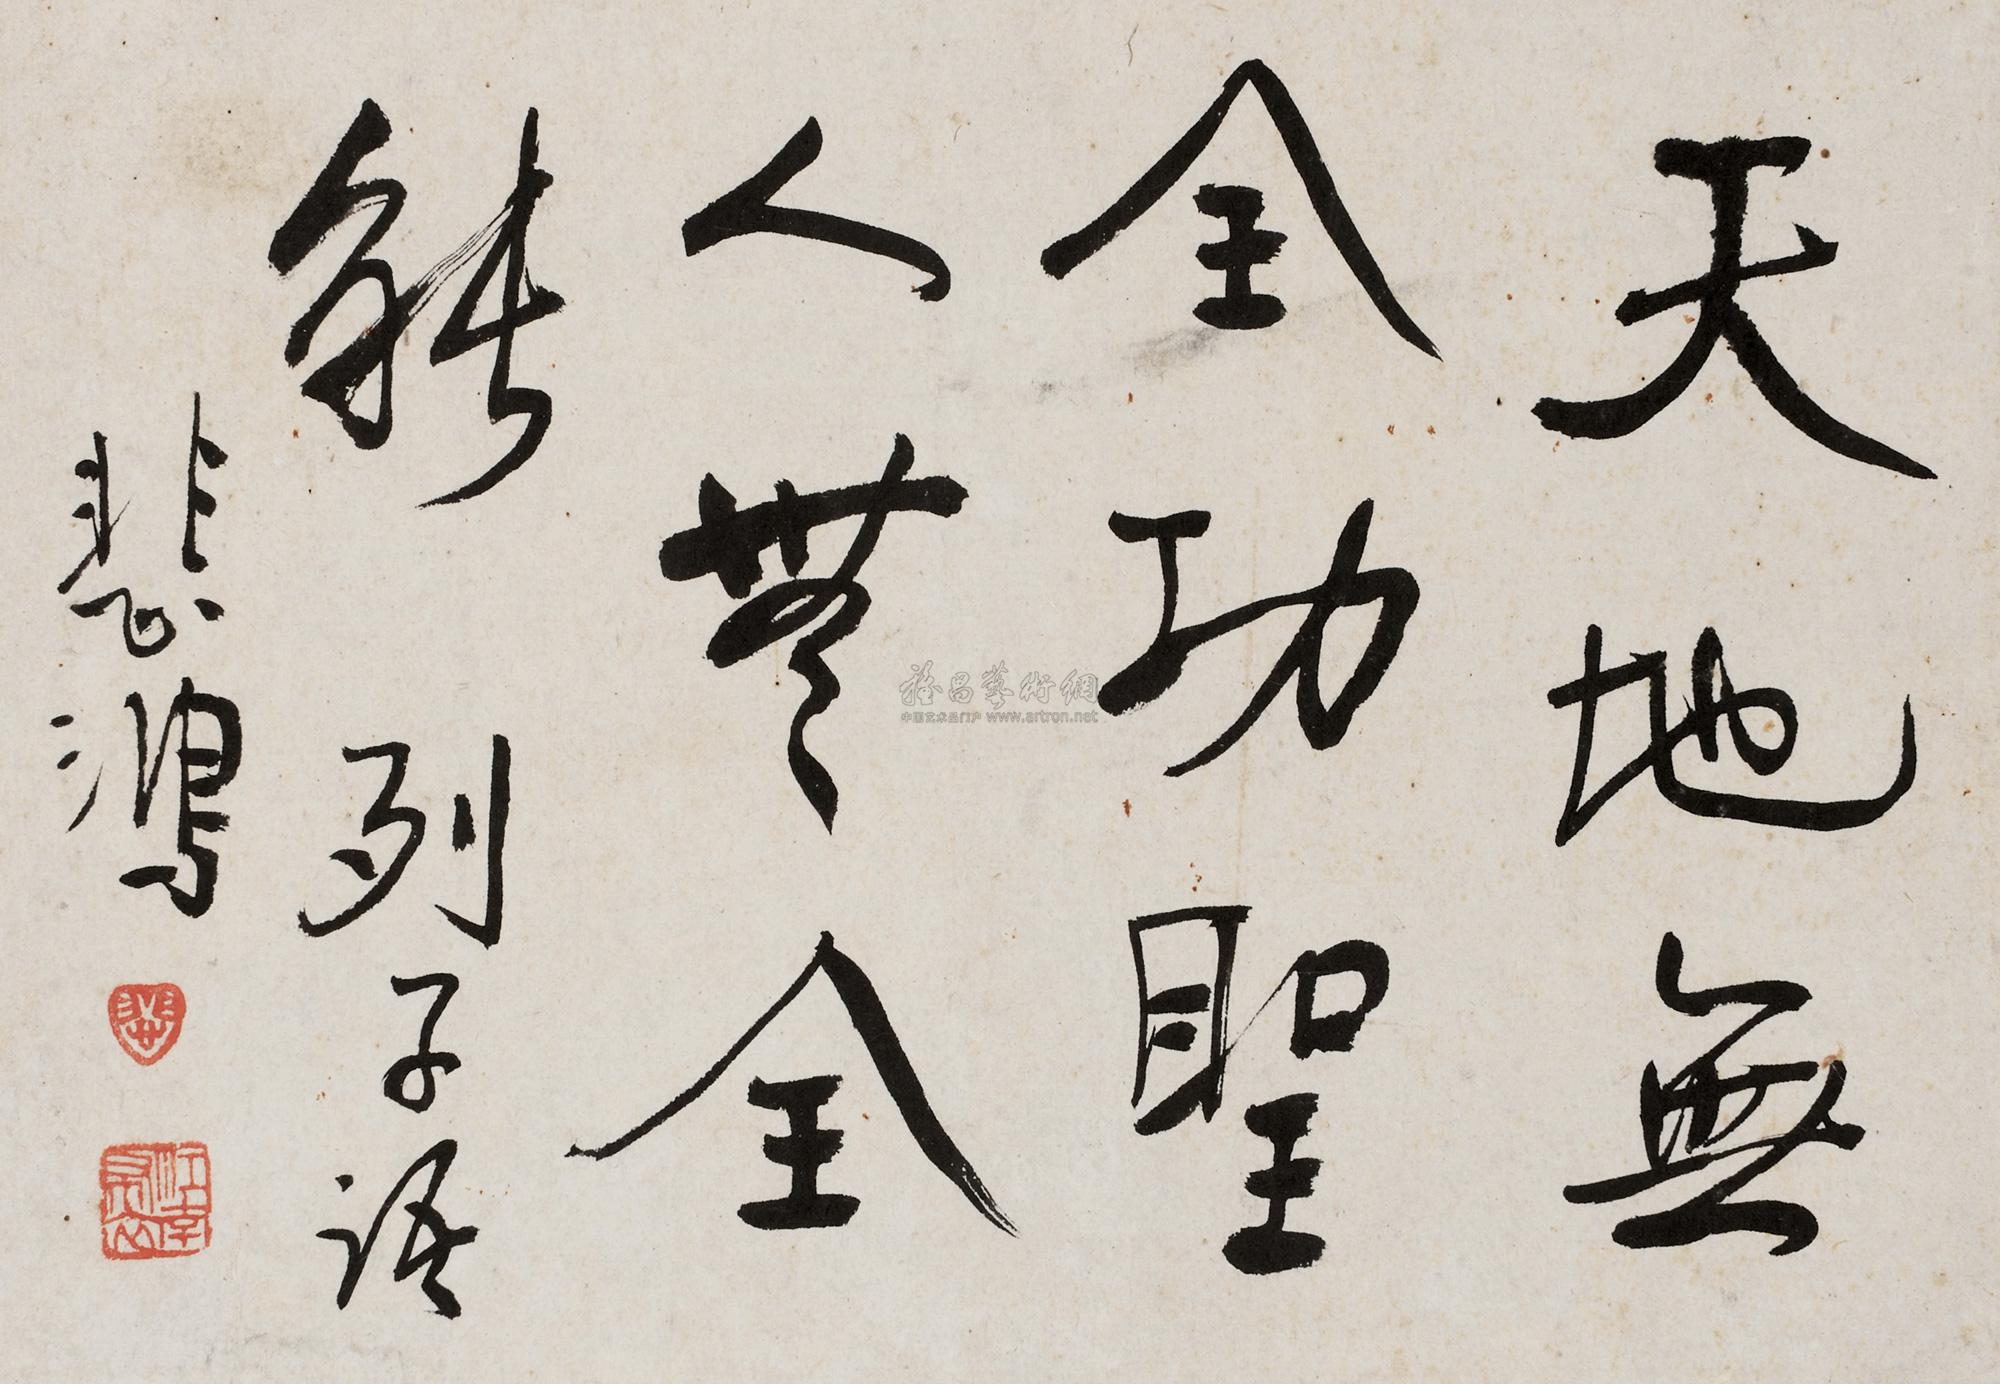 天地無
全功聖
人無全
能 列子語
悲鴻
悲
江南
雅昌藝術網
中国艺术品门户 www.artron.net